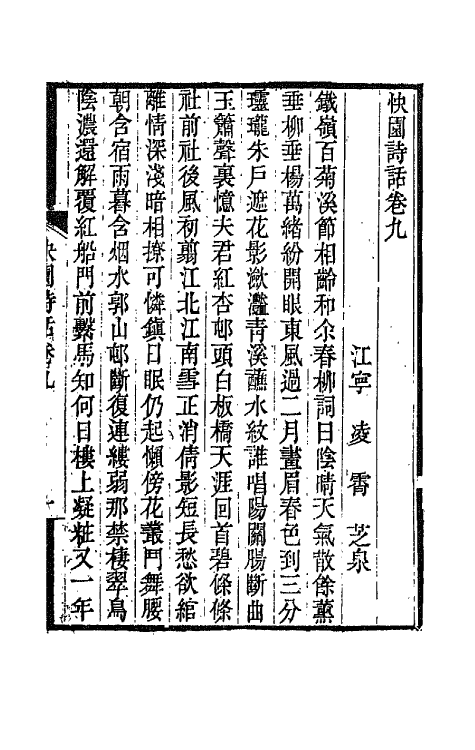 快園詩話卷九
江寧　凌霄　芝泉
鐵嶺百菊溪節相齡和余春柳詞曰陰晴天氣散餘薰
垂柳垂楊萬緒紛開眼東風過二月畫眉春色到三分
瓏瓏朱戶遮花影瀲灔青溪蘸水紋誰唱陽關腸斷曲
玉簫聲裏憶夫君紅杏邨頭白板橋天涯回首碧條條
社前社後風初翦江北江南雪正消倩影短長愁欲綰
離情深淺暗相撩可憐鎮日眠仍起懶傍花叢鬥舞腰
朝含宿雨暮含烟水郭山邨斷復連縷弱那禁棲翠鳥
陰濃還解覆紅船門前繫馬知何日樓上凝粧又一年
快園詩話卷九